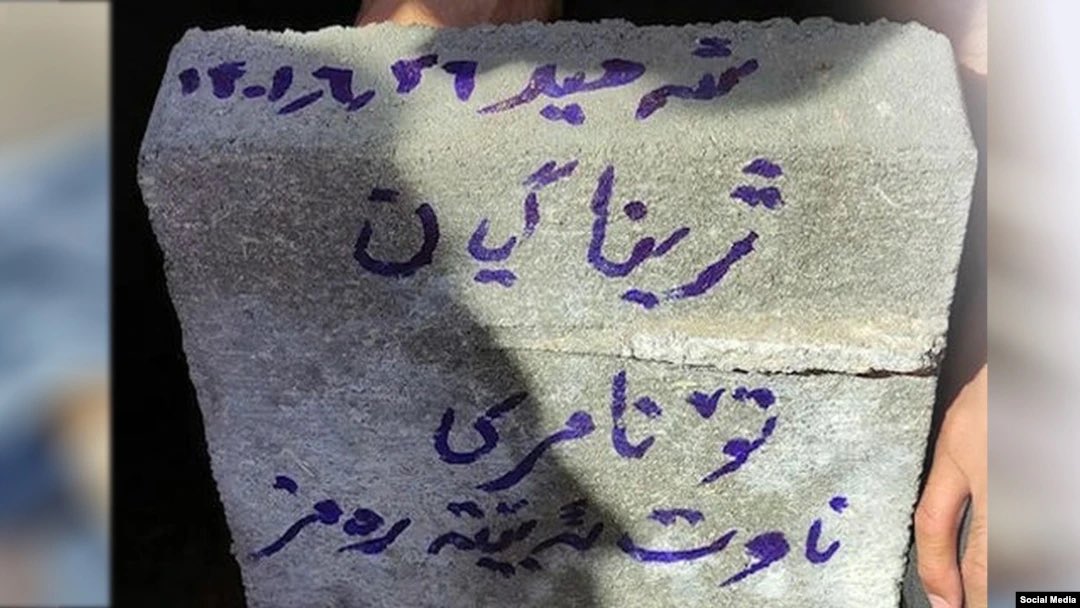 شەهید ١٤٠١٫٦٫٢٦
ژینا گیان
تۆ نامری
ناوت ئەبێتە ڕەمز
Social Media